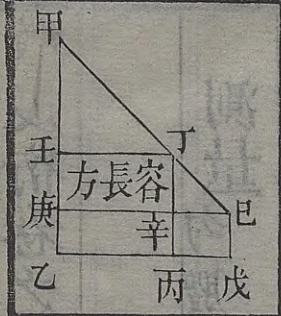 甲
丁
壬
容長方
庚
辛
巳
乙
丙
戊